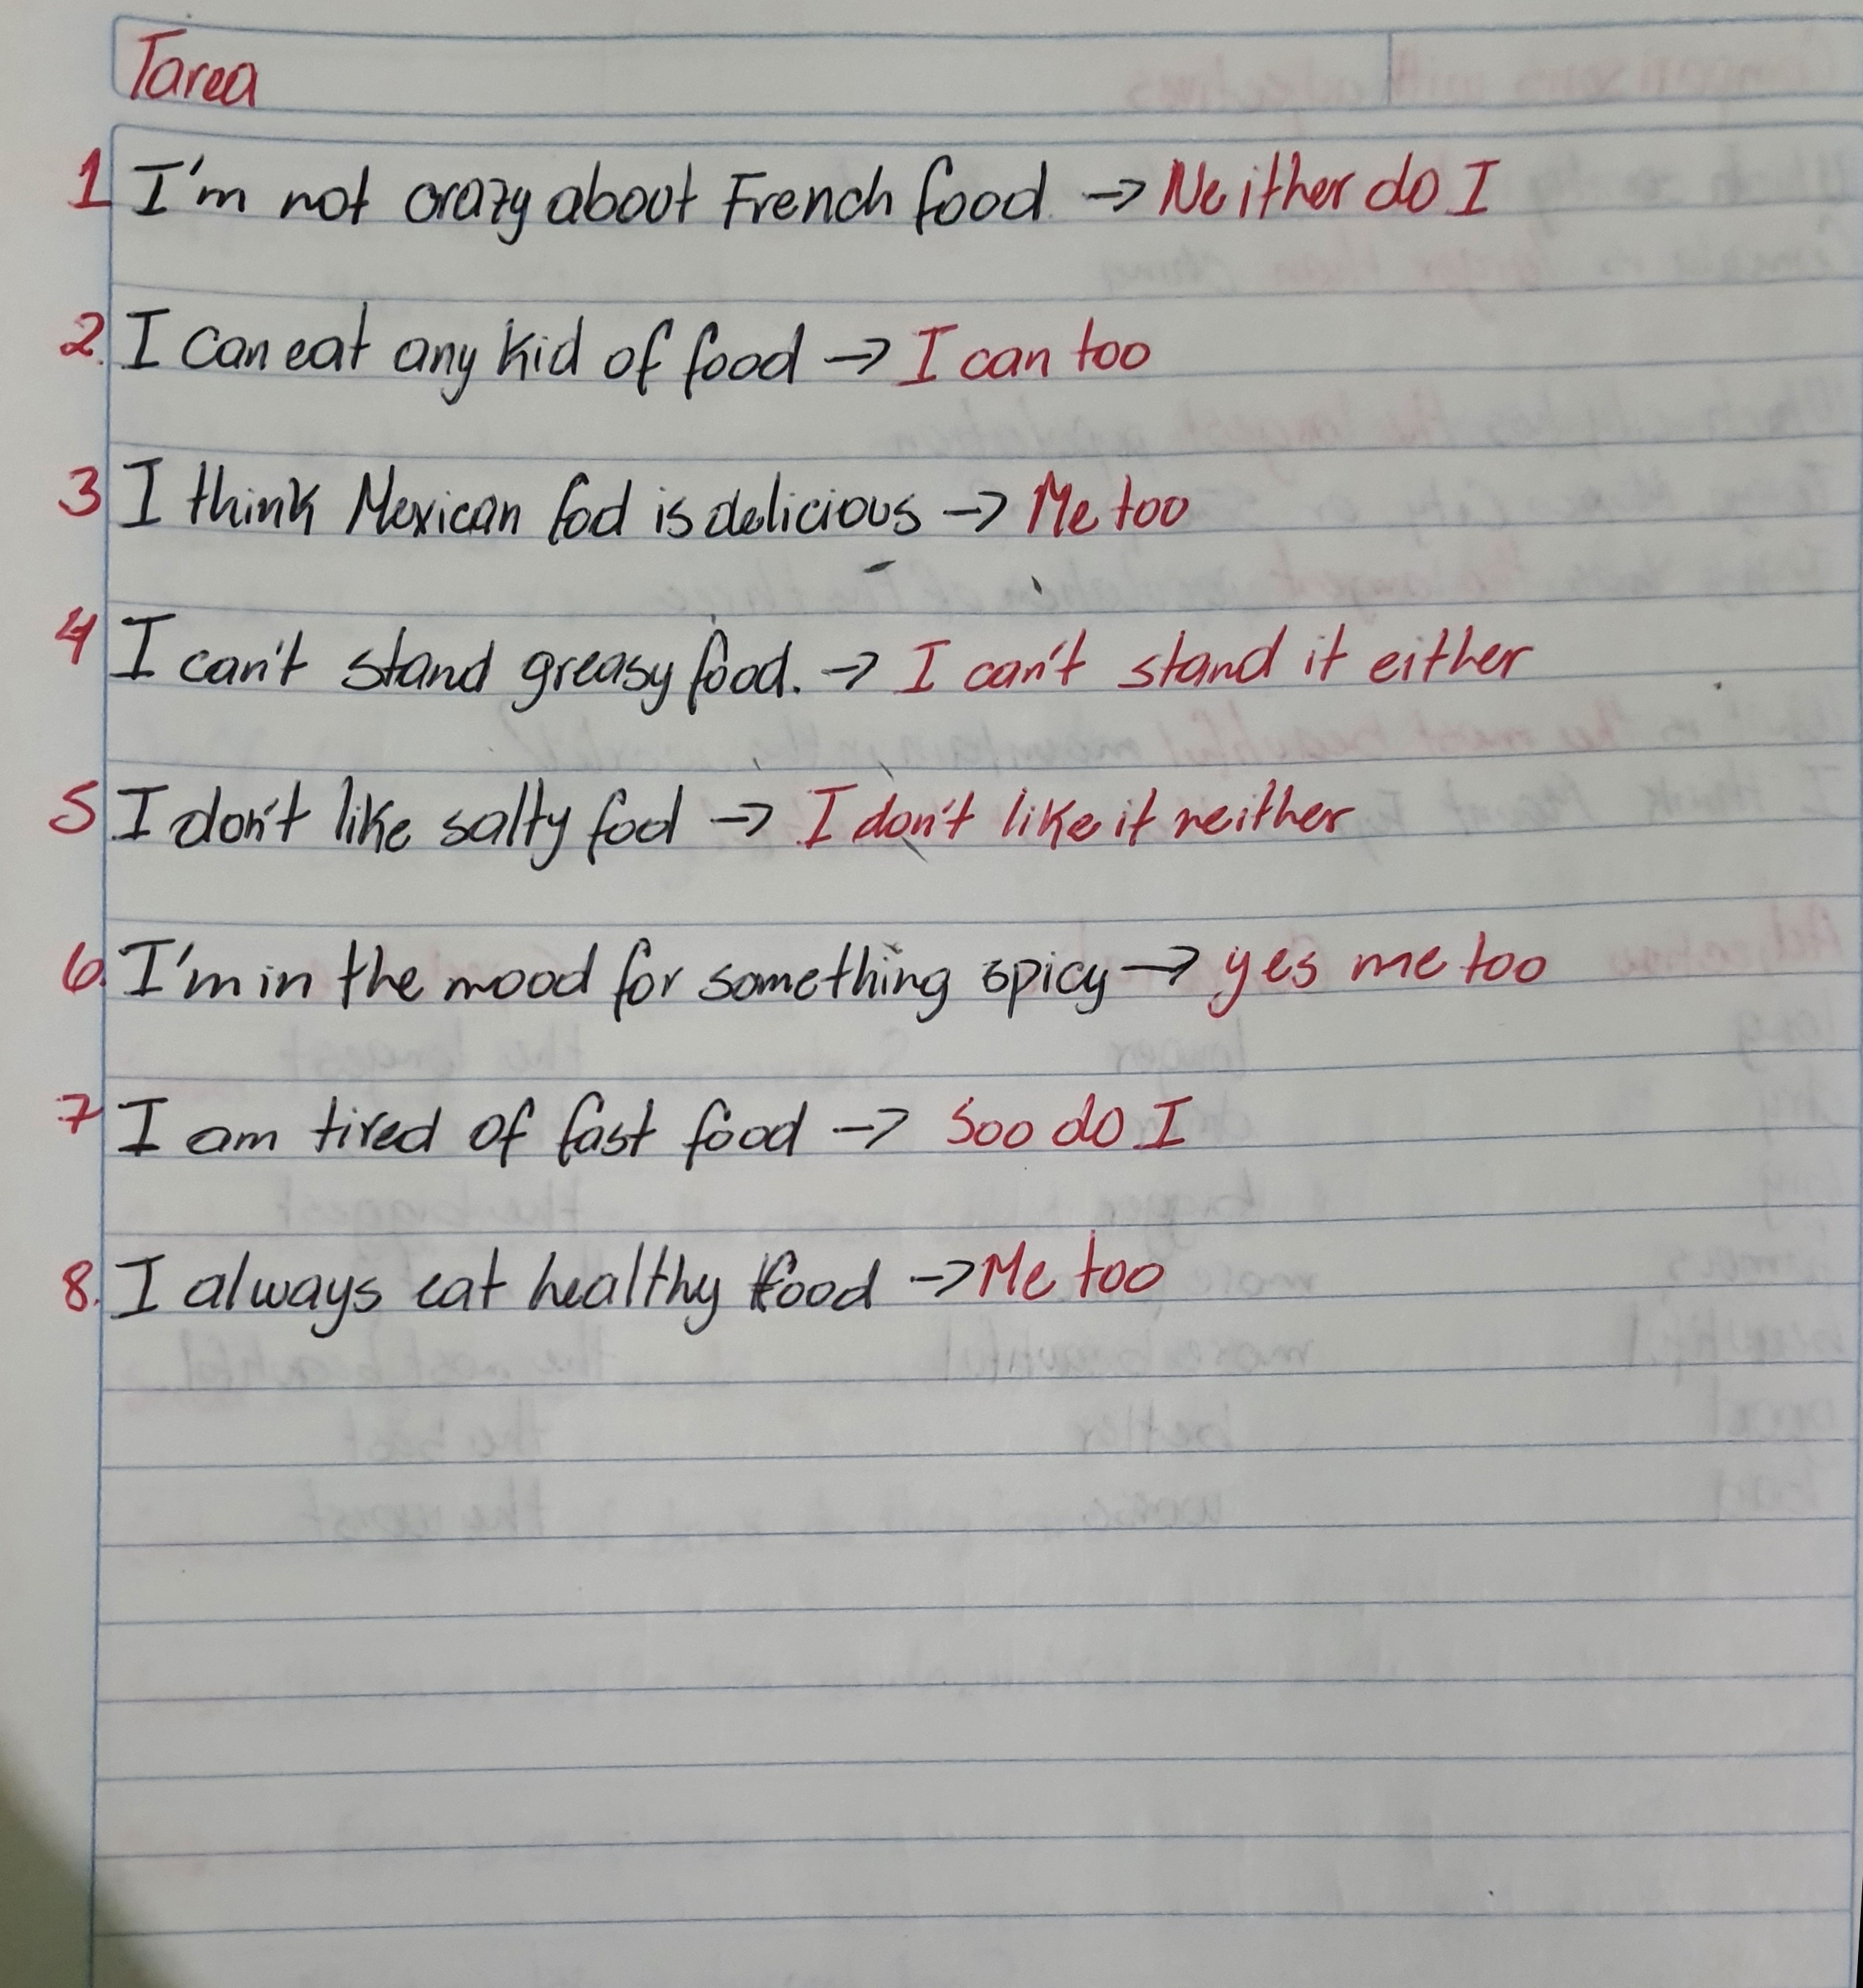 Tarea
1 I'm not crazy about French food. → Neither do I
2. I can eat any kid of food → I can too
3 I think Mexican fod is delicious → Me too
4 I can't stand greasy food. → I can't stand it either
5 I don't like salty food → I don't like it neither
6. I'm in the mood for something spicy → yes me too
7 I am tired of fast food → Soo do I
8. I always eat healthy food → Me too